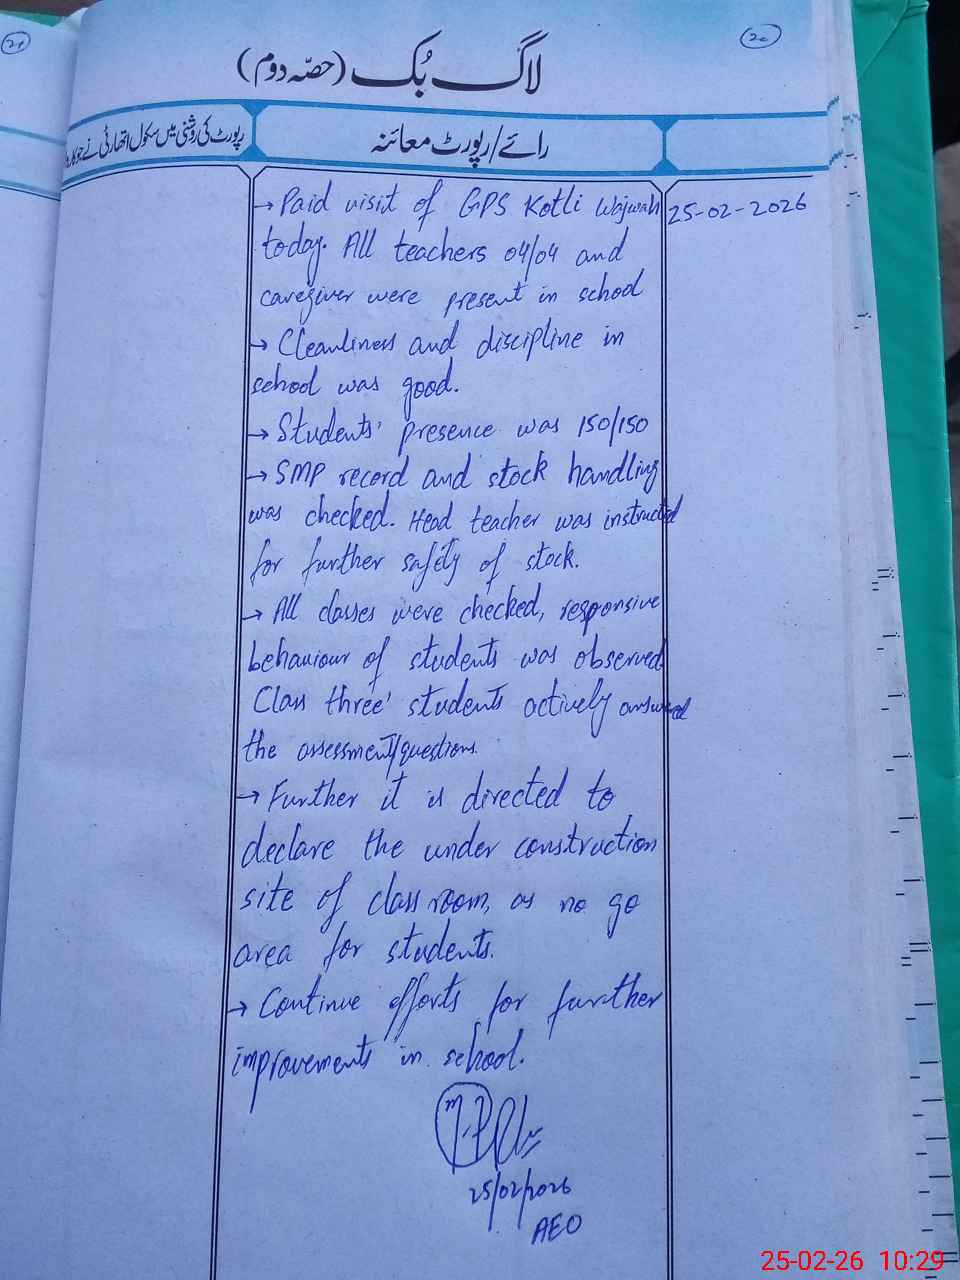 21
20
لاگ بُک (حصّہ دوم)
رائے/رپورٹ معائنہ
رپورٹ کی روشنی میں سکول اتھارٹی نے جو کارو
25-02-2026
→ Paid visit of GPS Kotli Wajwah
today. All teachers 04/04 and
caregiver were present in school
→ Cleanliness and discipline in
school was good.
→ Students' presence was 150/150
→ SMP record and stock handling
was checked. Head teacher was instructed
for further safety of stock.
→ All classes were checked, responsive
behaviour of students was observed.
Class three' students actively answered
the assessment/questions.
→ Further it is directed to
declare the under construction
site of class room, as no go
area for students.
→ Continue efforts for further
improvements in school.
25/02/2026
AEO
25-02-26 10:29